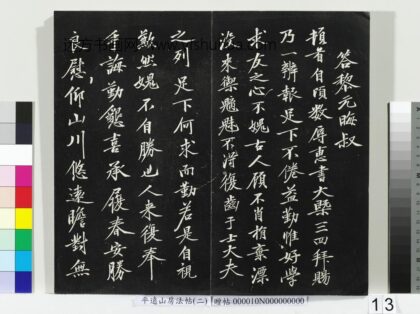 答黎元晦叔
頓者自頃數辱惠書大槩三四拜賜
乃一辦報足下不倦益勤惟好學
求友之心不愧古人顧不肖擯棄漂
沒來與魑魅不得復齒于士大夫
之列足下何求而勤若是自視
歉然愧不自勝也人來復奉
手誨勤懇喜承履春安勝
良慰仰山川悠遠瞻對無
平遠山房法帖(二)
000010N000000000
13